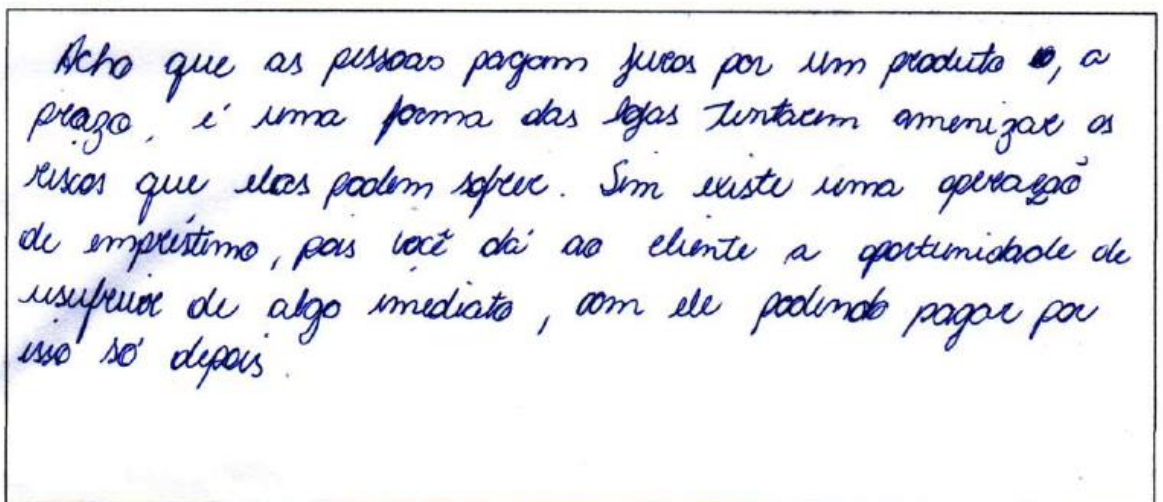 Acho que as pessoas pagam juros por um produto, a
prazo, é uma forma das lojas tentarem amenizar os
riscos que elas podem sofrer. Sim existe uma operação
de empréstimo, pois você dá ao cliente a oportunidade de
usufruir de algo imediato, com ele podendo pagar por
isso só depois.